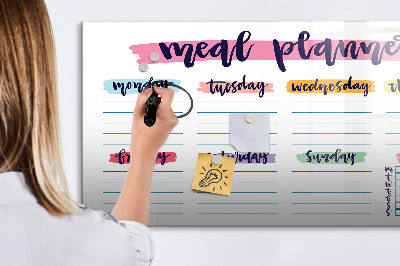 meal planner
monday tuesday wednesday
saturday sunday